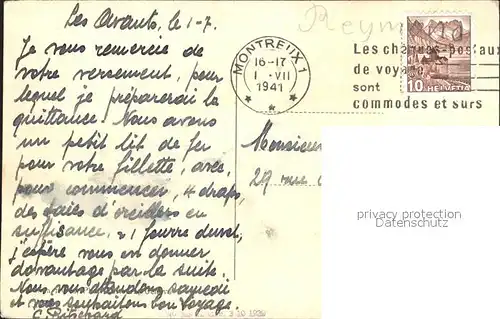 Les Avants, le 1-7.
Je vous remercie de
votre versement, pour
lequel je préparerai la
quittance. Nous avons
un petit lit de fer
pour votre fillette, avec,
pour commencer, 4 draps,
des taies d'oreillers en
suffisance, 1 fourre duvet,
j'espère vous en donner
davantage par la suite.
Nous vous attendons samedi
et vous souhaitons bon voyage.
C. Pritschard
Reymond
MONTREUX 1
16-17
1 - VII
1941
Les chèques-postaux
de voyage
sont
commodes et surs
10 HELVETIA
Monsieur
29 rue
privacy protection
(WWW.ANSICHTSKARTEN-LEXIKON.COM)
3 10 1939